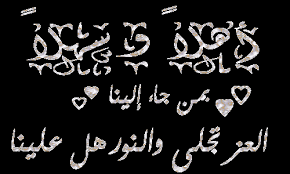 أهلاً و سهلاً
بمن جاء إلينا
العز تجلى والنور هل علينا